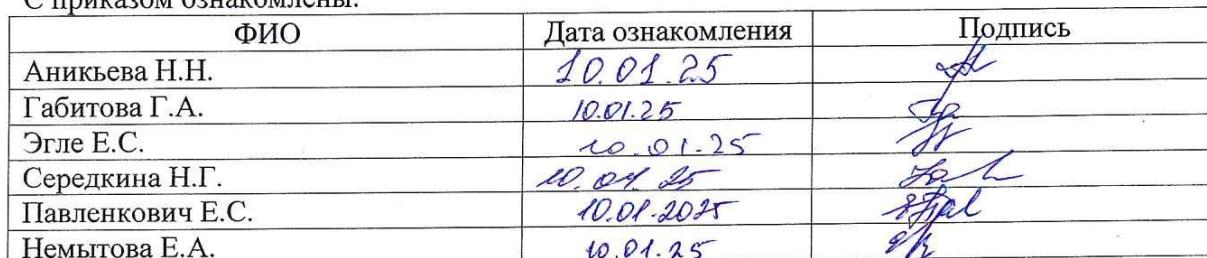 С приказом ознакомлены:
ФИО Дата ознакомления Подпись
Аникьева Н.Н. 10.01.25
Габитова Г.А. 10.01.25
Эгле Е.С. 10.01.25
Середкина Н.Г. 10.01.25
Павленкович Е.С. 10.01.2025
Немытова Е.А. 10.01.25